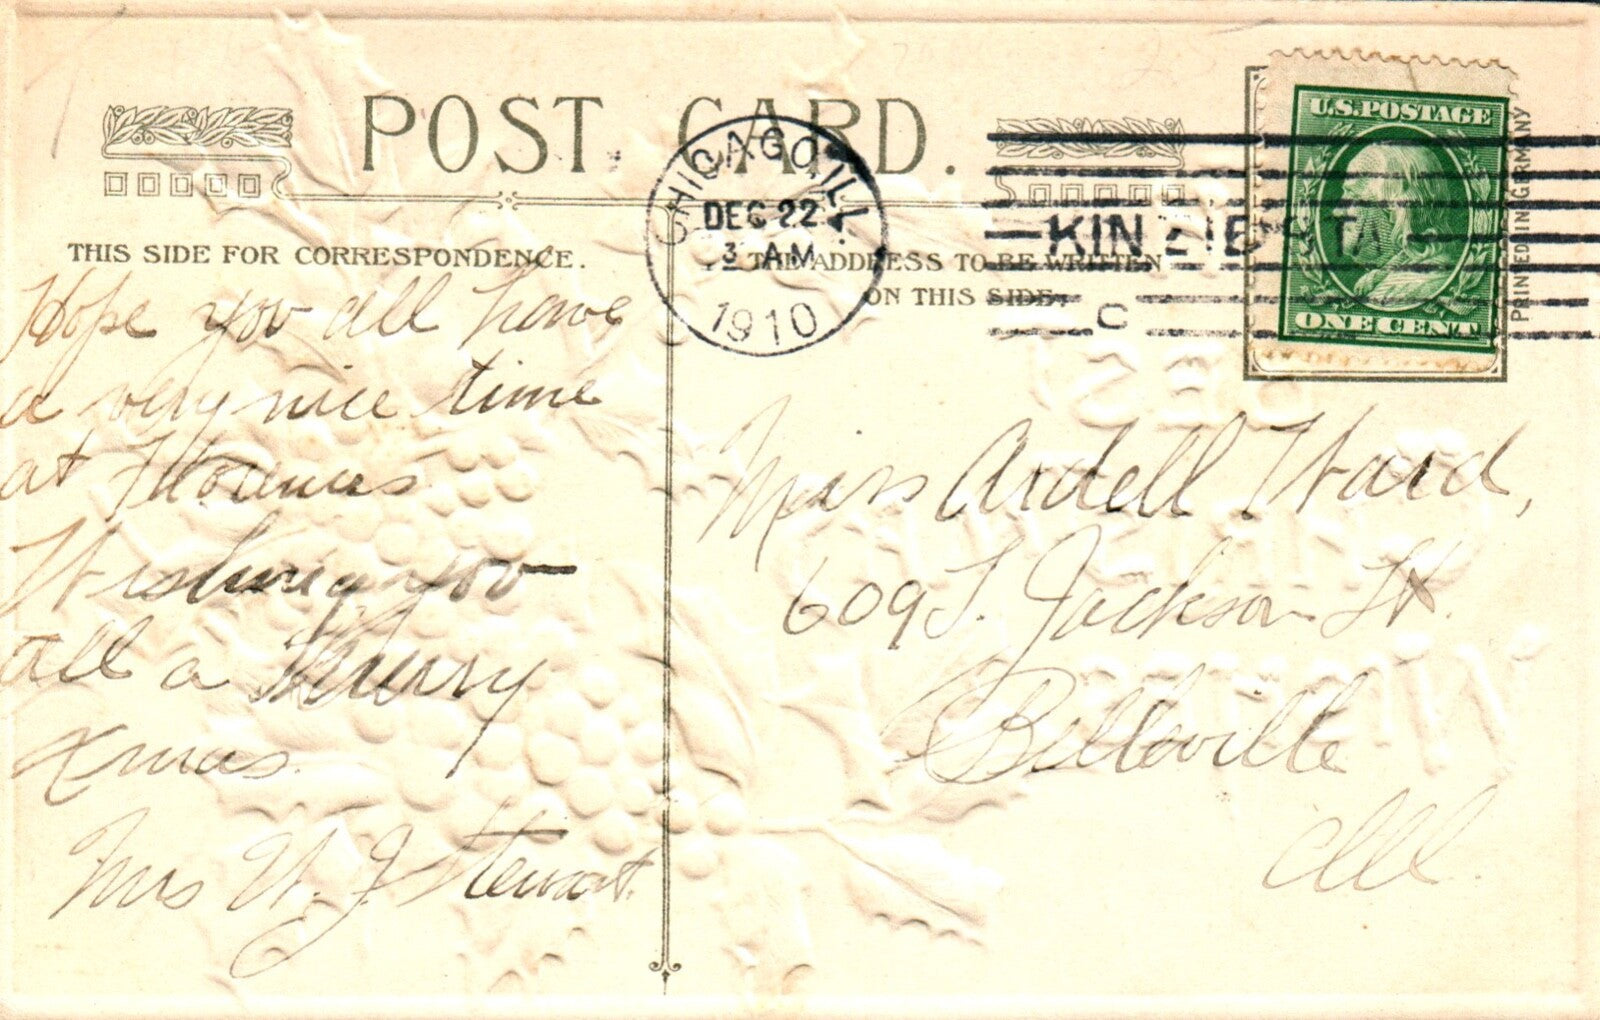 POST CARD.
THIS SIDE FOR CORRESPONDENCE.
Hope you all have
a very nice time
at Florences
Wishing you
all a Merry
Xmas.
Mrs W. J. Stewart.
CHICAGO, ILL.
DEC 22
3 AM
1910
THE ADDRESS TO BE WRITTEN
ON THIS SIDE.
KINZIE STA
C
U.S. POSTAGE
ONE CENT
PRINTED IN GERMANY
Miss Ardell Ward,
609 S. Jackson St.
Belleville
Ill.